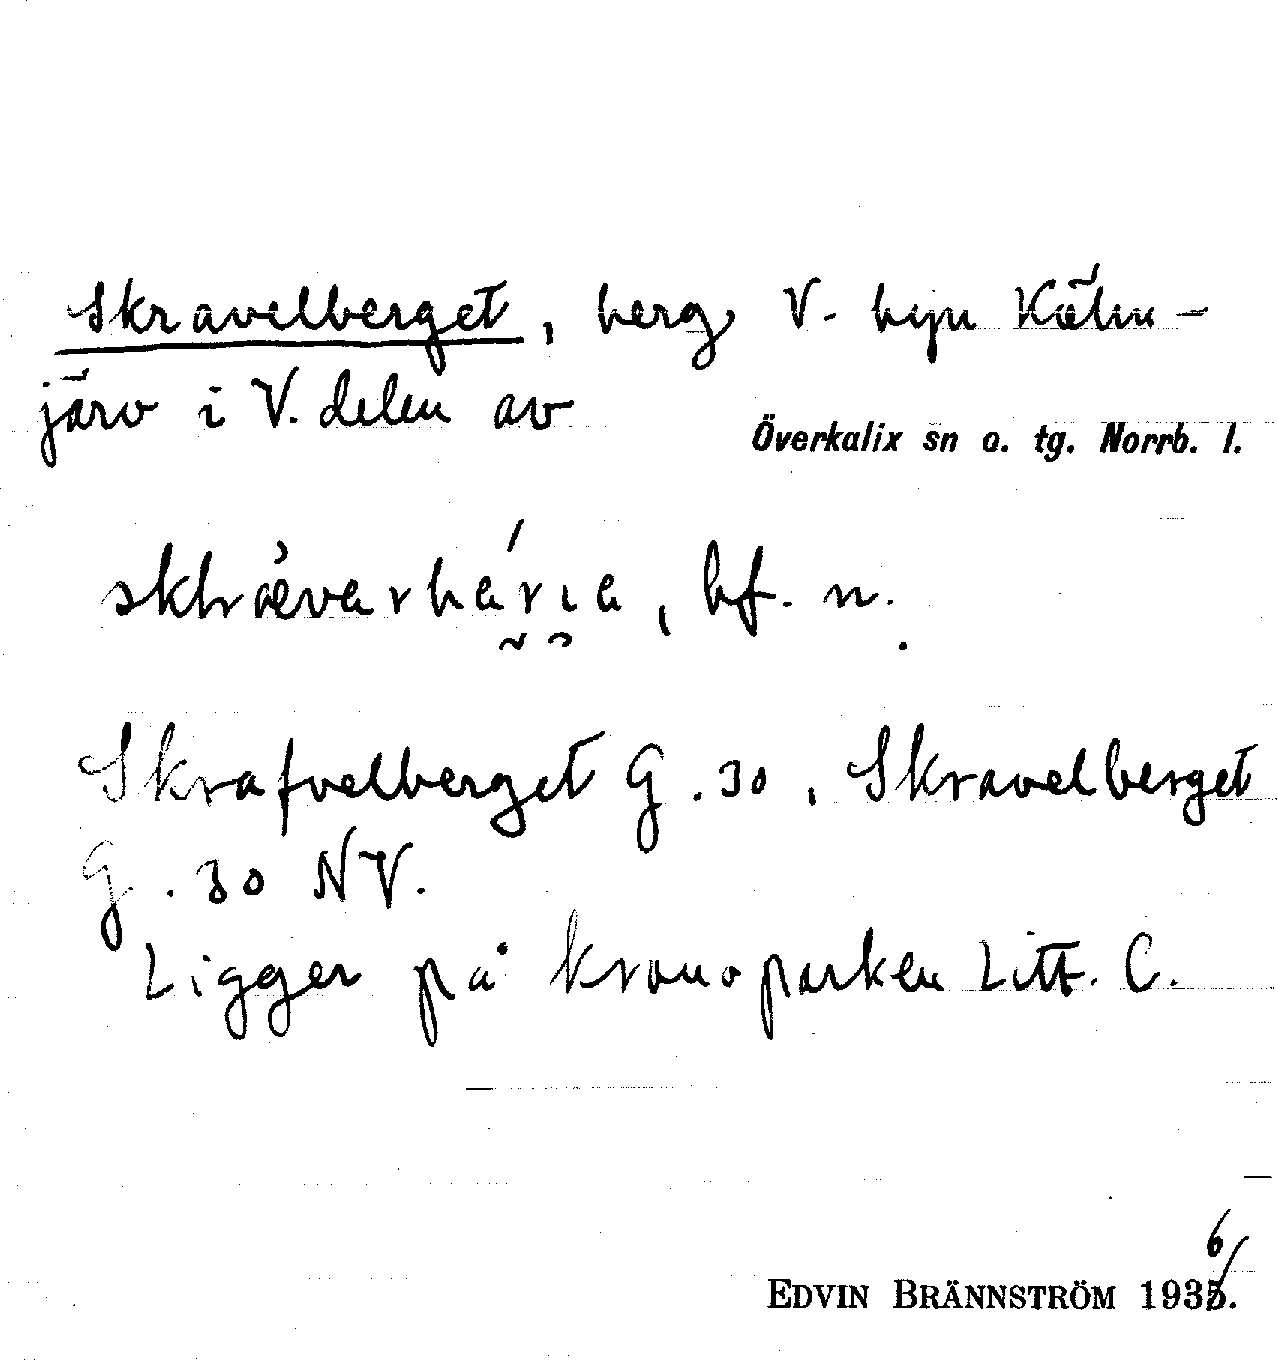 Skravelberget, berg V. byn Kälm-
järv i V. delen av
Överkalix sn o. tg. Norrb. l.
bf. n.
Skrafvelberget G. 30, Skravelberget
G. 30 NV.
Ligger på kronoparken Litt. C.
6
EDVIN BRÄNNSTRÖM 1935.